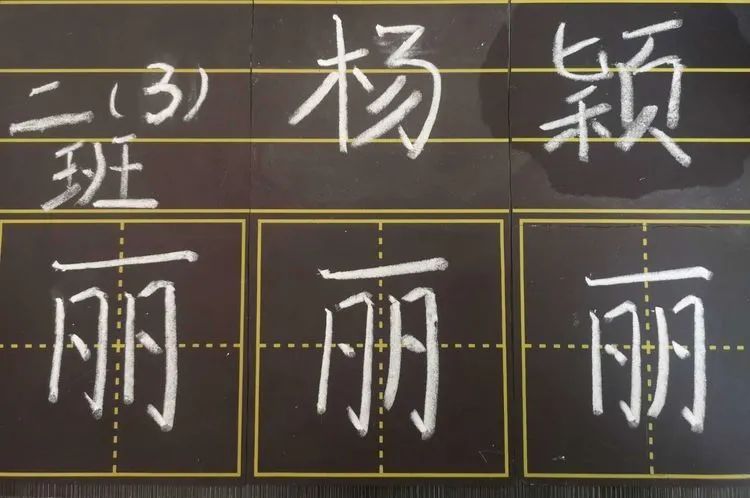 二(3) 杨 颖
班
丽 丽 丽